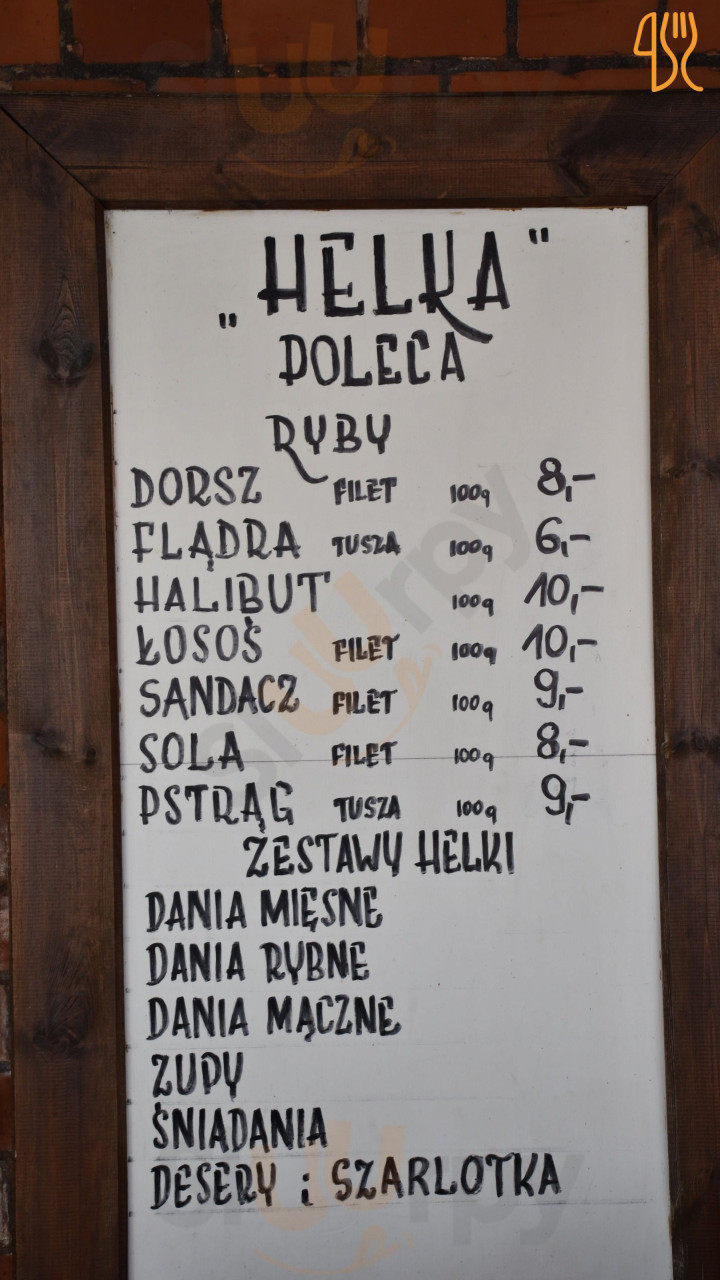 „HELKA"
POLECA
RYBY
DORSZ FILET 100g 8,-
FLĄDRA TUSZA 100g 6,-
HALIBUT 100g 10,-
ŁOSOŚ FILET 100g 10,-
SANDACZ FILET 100g 9,-
SOLA FILET 100g 8,-
PSTRĄG TUSZA 100g 9,-
ZESTAWY HELKI
DANIA MIĘSNE
DANIA RYBNE
DANIA MĄCZNE
ZUPY
ŚNIADANIA
DESERY i SZARLOTKA